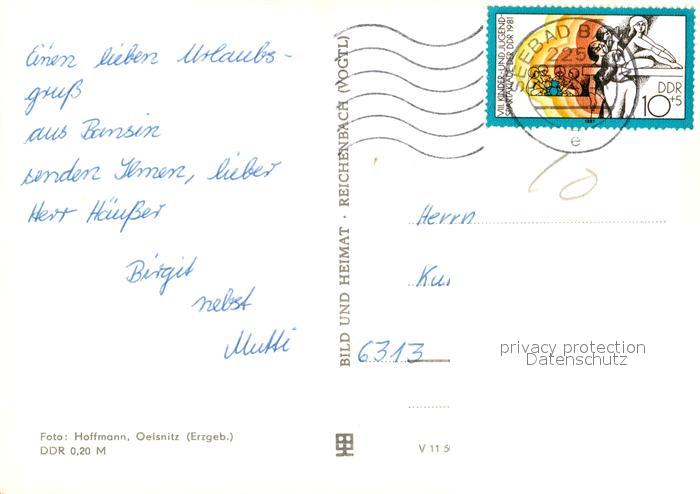 Einen lieben Urlaubs-
gruß
aus Bansin
senden Ihnen, lieber
Herr Häußer
Birgit
nebst
Mutti
Foto: Hoffmann, Oelsnitz (Erzgeb.)
DDR 0,20 M
BILD UND HEIMAT · REICHENBACH (VOGTL)
VIII. KINDER- UND JUGEND-
SPARTAKIADE DER DDR 1981
DDR
10+5
1981
SEEBAD B
225
e
Herrn
Ku
6313
privacy protection
Datenschutz
V 11 5